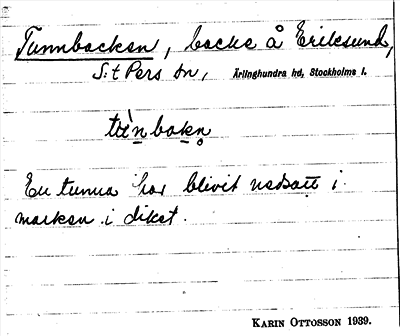 Tunnbacken, backe å Eriksund,
S:t Pers sn, Ärlinghundra hd, Stockholms l.
tùnbakn̥
En tunna har blivit nedsatt i
marken i diket.
KARIN OTTOSSON 1939.